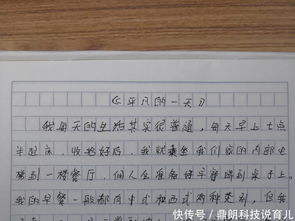 《平凡的一天》
我每天的生活其实很普通，每天早上七点
半起床，收拾好后，我就乘坐我们家的内部电
梯到一楼餐厅，佣人会准备好早餐端到桌子上。
我的早餐一般都有中式和西式两种类别，但我
快传号/鼎朗科技说育儿